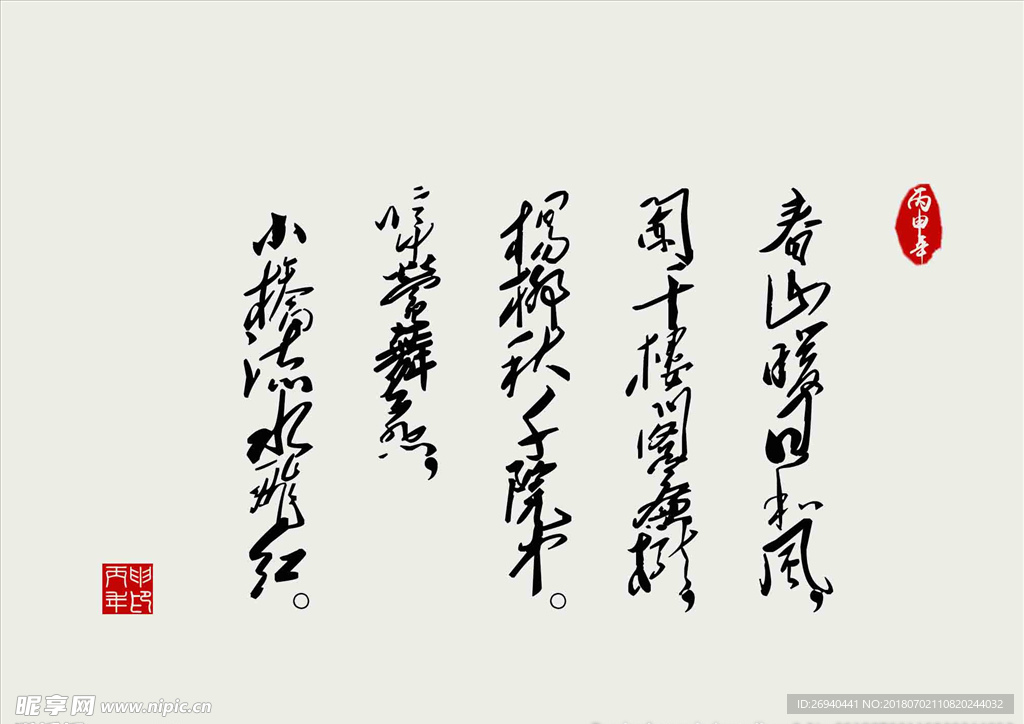 丙申年
春山暖日和風，
闌干樓閣簾櫳，
楊柳秋千院中。
啼鶯舞燕，
小橋流水飛紅。
丙申年印
昵享网 www.nipic.cn
ID:26940441 NO:20180702110820244032